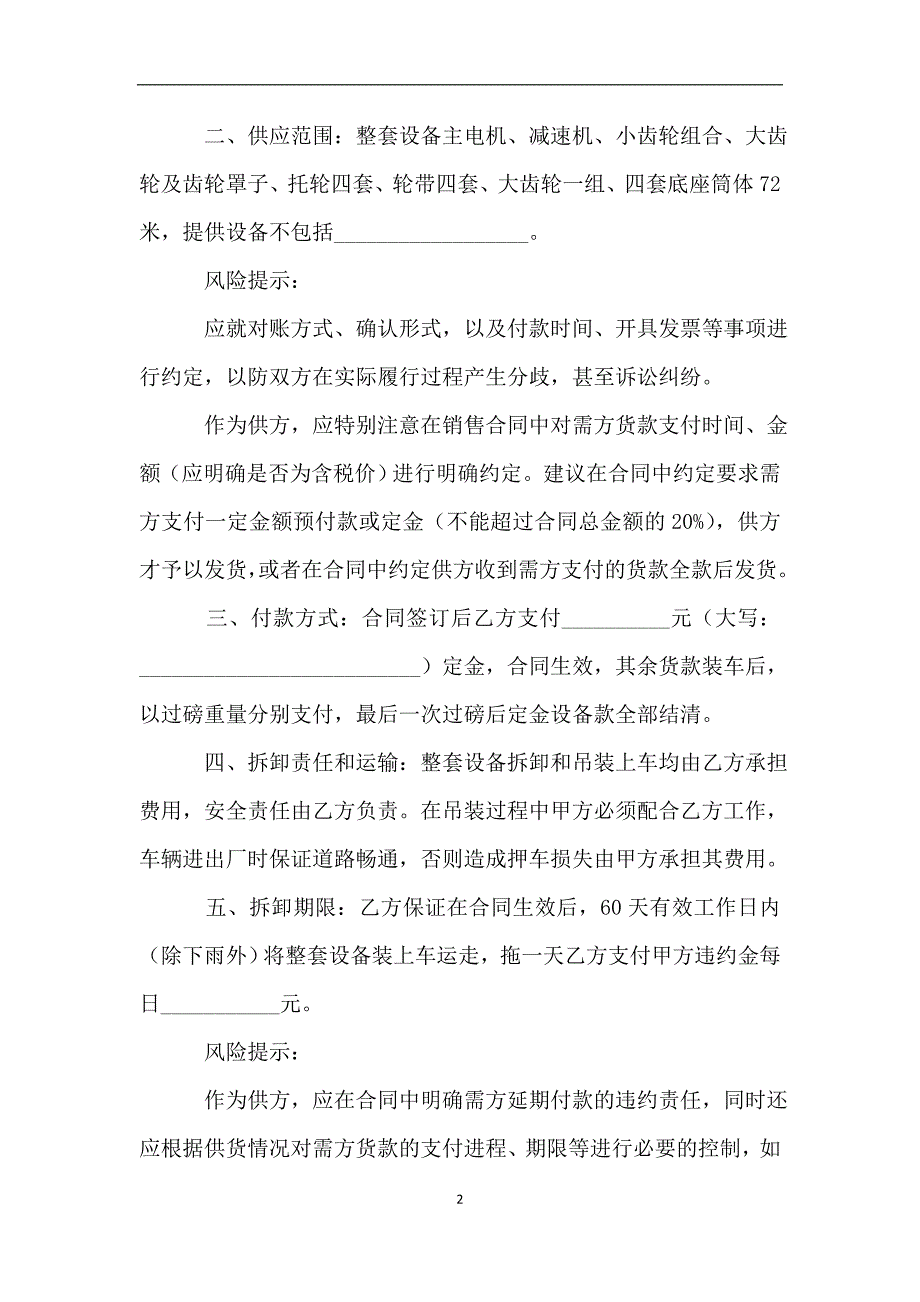 二、供应范围：整套设备主电机、减速机、小齿轮组合、大齿
轮及齿轮罩子、托轮四套、轮带四套、大齿轮一组、四套底座筒体 72
米，提供设备不包括__________________。
风险提示：
应就对账方式、确认形式，以及付款时间、开具发票等事项进
行约定，以防双方在实际履行过程产生分歧，甚至诉讼纠纷。
作为供方，应特别注意在销售合同中对需方货款支付时间、金
额（应明确是否为含税价）进行明确约定。建议在合同中约定要求需
方支付一定金额预付款或定金（不能超过合同总金额的 20%），供方
才予以发货，或者在合同中约定供方收到需方支付的货款全款后发货。
三、付款方式：合同签订后乙方支付__________元（大写：
__________________________）定金，合同生效，其余货款装车后，
以过磅重量分别支付，最后一次过磅后定金设备款全部结清。
四、拆卸责任和运输：整套设备拆卸和吊装上车均由乙方承担
费用，安全责任由乙方负责。在吊装过程中甲方必须配合乙方工作，
车辆进出厂时保证道路畅通，否则造成押车损失由甲方承担其费用。
五、拆卸期限：乙方保证在合同生效后，60 天有效工作日内
（除下雨外）将整套设备装上车运走，拖一天乙方支付甲方违约金每
日___________元。
风险提示：
作为供方，应在合同中明确需方延期付款的违约责任，同时还
应根据供货情况对需方货款的支付进程、期限等进行必要的控制，如
2